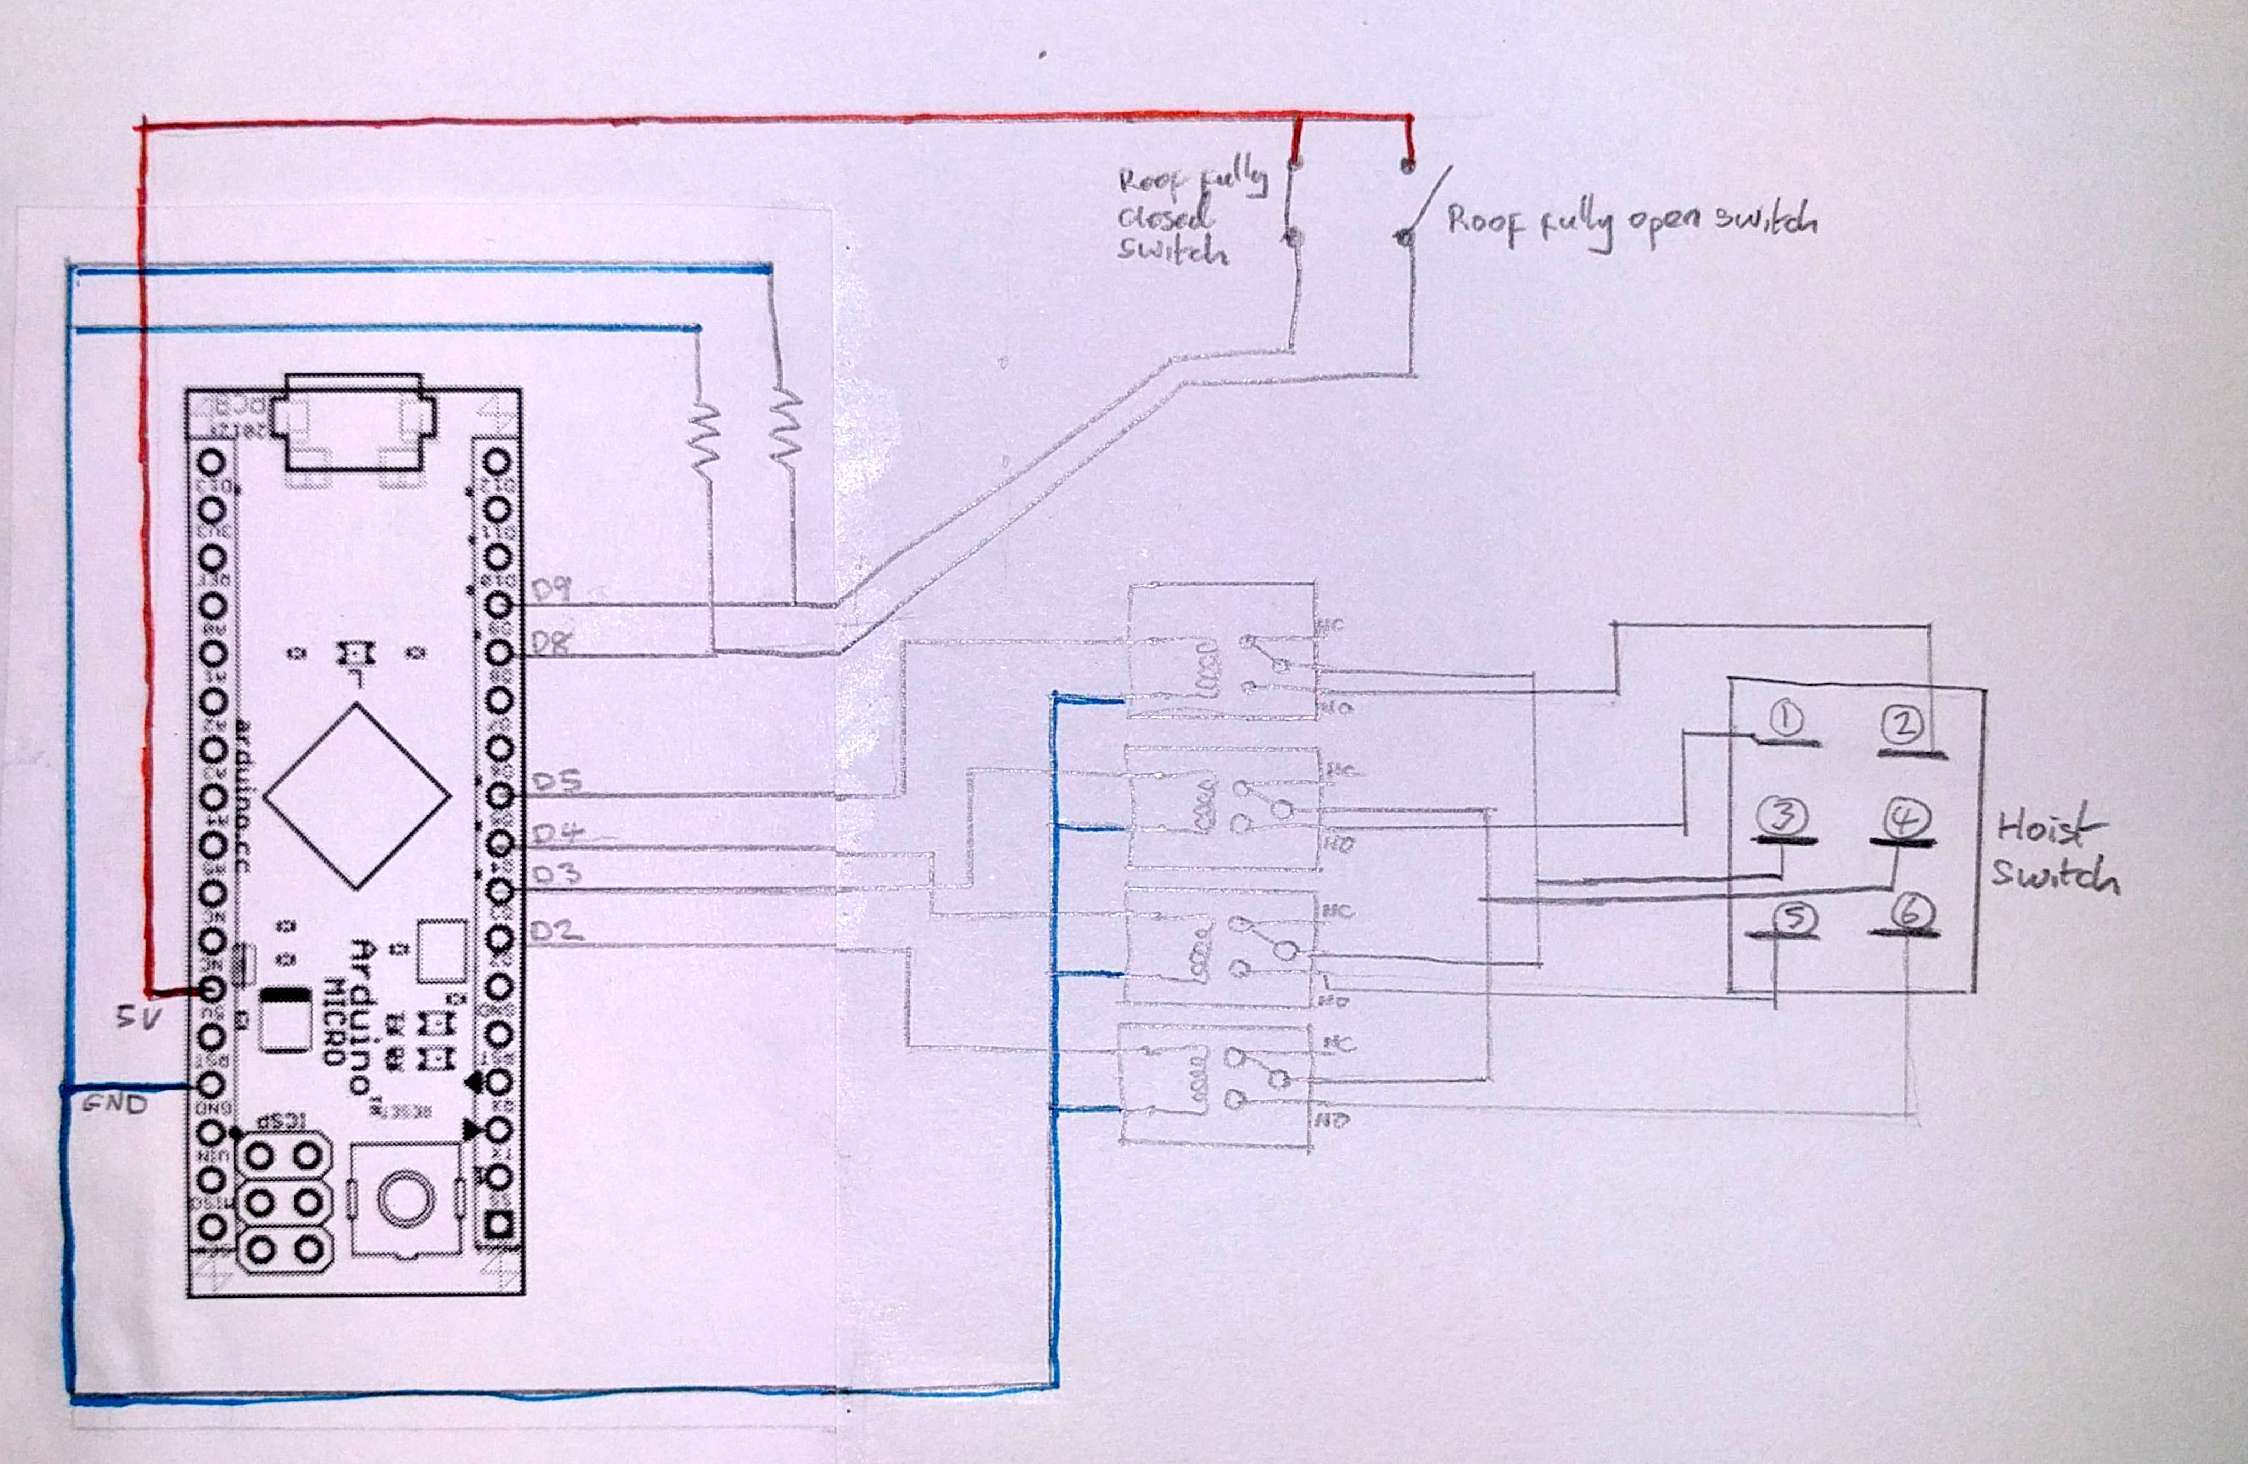 Roof fully
closed
switch
Roof fully open switch
D9
D8
D5
D4
D3
D2
5V
GND
arduino.cc
Arduino™
MICRO
RESET
ICSP
GND
TX
RX
NC
NO
NC
NO
NC
NO
NC
NO
1
2
3
4
5
6
Hoist
Switch